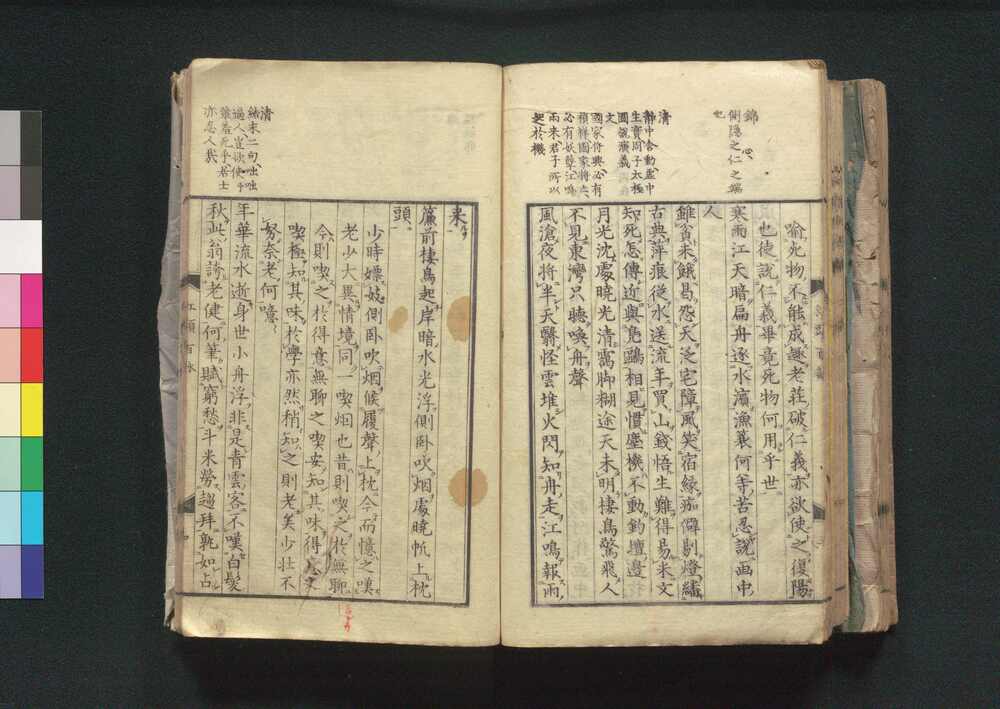 錦 心
惻隱之仁之端
也
清
靜中含動、虛中
生實、周子太極
圖說演義
文
國家侍興必有
禎祥國家將亡
必有妖孽江鳴
雨来君子所以
起於機
喻死物不能成趣老莊破仁義亦欲使之復陽
也徒說仁義畢竟死物何用乎世
寒雨江天暗扁舟逐水濱漁蓑何等苦忍說画中
人
雖貧未餓曷怨天泛宅障風笑宿緣痴僻剔燈繙
古典萍痕從水送流年買山錢悟生難得易米文
知死怎傳近與鳧鷗相見慣塵機不動釣壇邊
月光沈處曉光清靄脚糊途天未明棲鳥驚飛人
不見東灣只聽喚舟聲
風滄夜將半天醫怪雲堆火閃知舟走江鳴報雨
来
簾前棲鳥起岸暗水光浮側卧吹烟處曉帆上枕
頭
少時嫖妓側卧吹烟候履聲上枕今而憶之嘆
老少大異情境同一喫烟也昔則喫之於無聊
今則喫之於得意無聊之喫安知其味得意之
喫極知其味於學亦然稍知之則老矣少壮不
努奈老何噫
年華流水逝身世小舟浮非是青雲客不嘆白髮
秋此翁誇老健何筆賦窮愁斗米勞趨拜孰如占
清
結末二句咄咄
逼人豈欲使乎
雖羞死乎若士
亦忘人哉